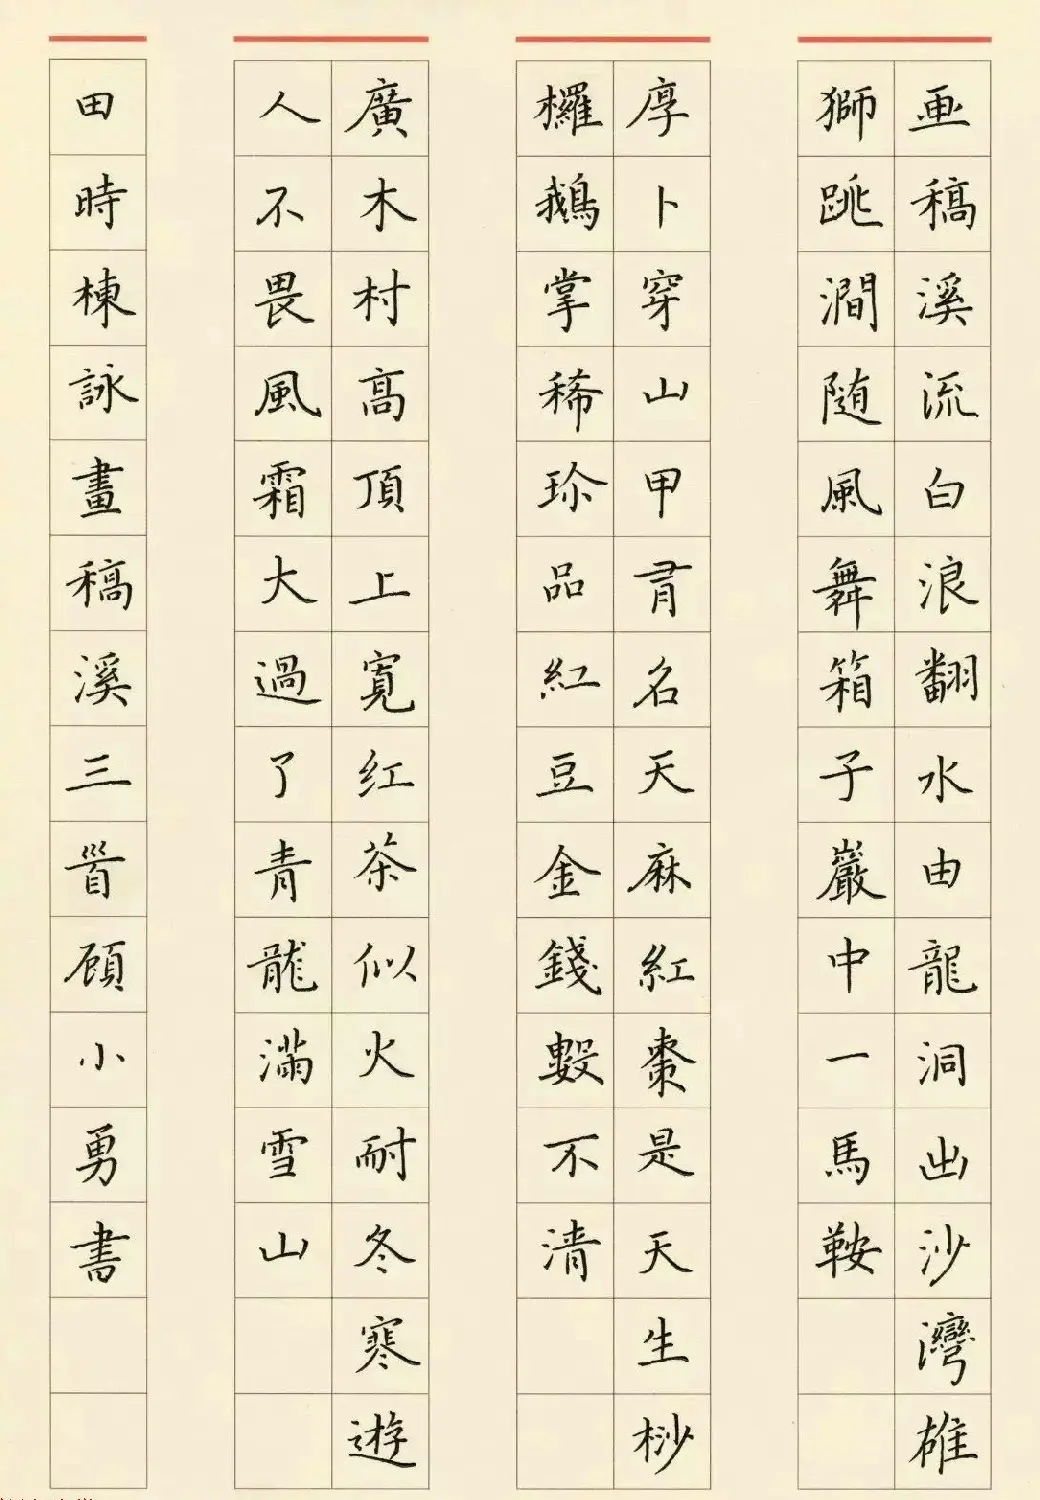 画稿溪流白浪翻水由龍洞出沙灣雄
獅跳澗随風舞箱子巖中一馬鞍
厚卜穿山甲有名天麻紅棗是天生桫
欏鵝掌稀珍品紅豆金錢數不清
廣木村高頂上寬红茶似火耐冬寒遊
人不畏風霜大過了青龍滿雪山
田時棟詠畫稿溪三首顾小勇書